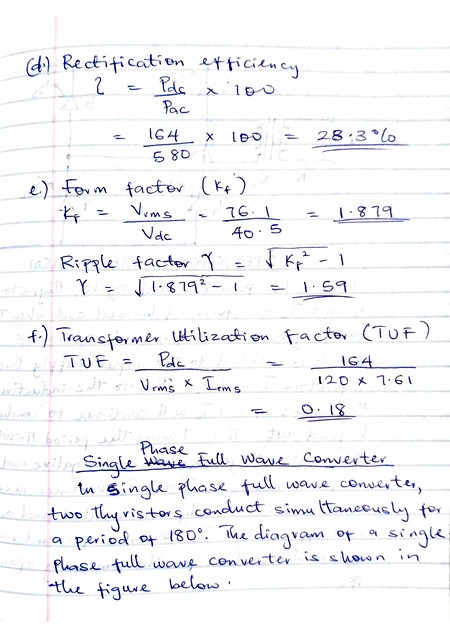 (d.) Rectification efficiency
η = Pdc/Pac × 100
= 164/580 × 100 = 28.3%
e.) Form factor (Kf)
Kf = Vrms/Vdc = 76.1/40.5 = 1.879
Ripple factor γ = √Kf² - 1
γ = √1.879² - 1 = 1.59
f.) Transformer Utilization Factor (TUF)
TUF = Pdc/Vrms × Irms = 164/120 × 7.61
= 0.18
Single Phase Full Wave Converter
In single phase full wave converter,
two thyristors conduct simultaneously for
a period of 180°. The diagram of a single
Phase full wave converter is shown in
the figure below.